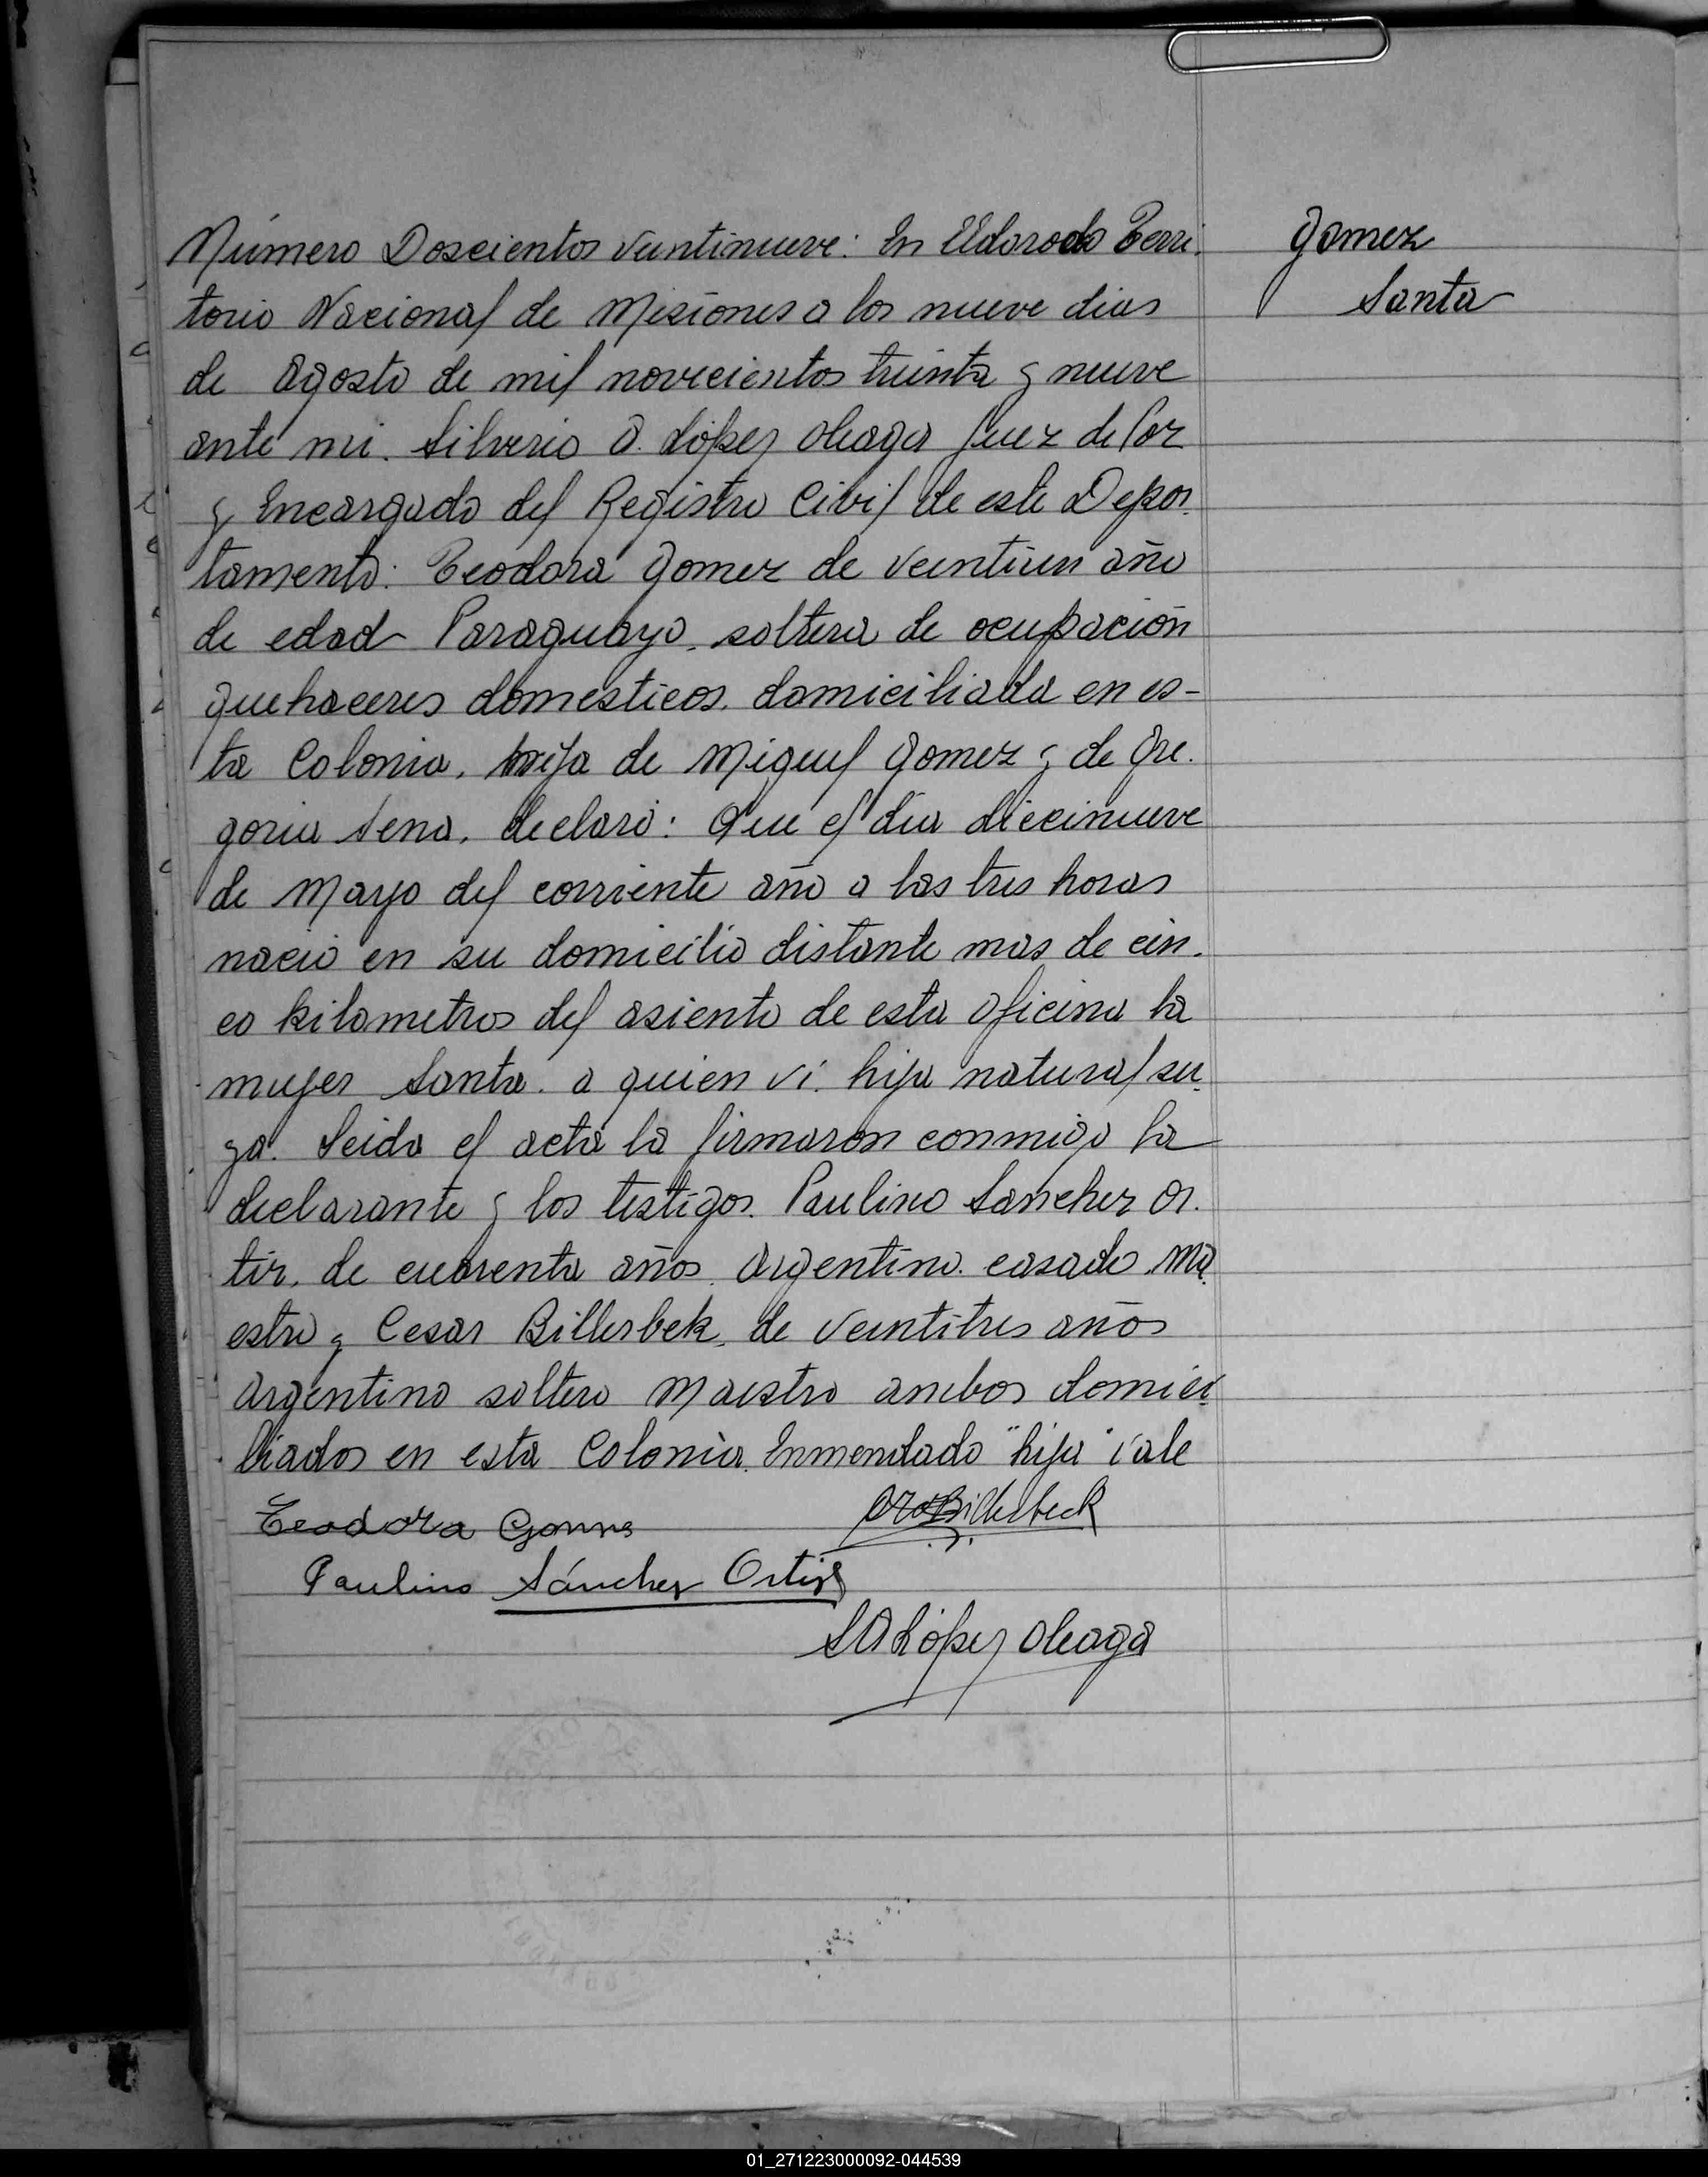 Número Doscientos veintinueve: En Eldorado Terri-
torio Nacional de Misiones a los nueve dias
de Agosto de mil novecientos treinta y nueve
ante mi. Silverio A. López Oleaga Juez de Paz
y Encargado del Registro Civil de este Depar-
tamento: Teodora Gomez de veintiun año
de edad Paraguaya, soltera de ocupación
quehaceres domesticos, domiciliada en es-
ta Colonia, hija de Miguel Gomez y de Gre-
goria Sena, declaró: Que el dia diecinueve
de Mayo del corriente año a las tres horas
nació en su domicilio distante mas de cin-
co kilometros del asiento de esta oficina la
mujer Santa. a quien vi. hija natural su-
ya. Leida el acta la firmaron conmigo la
declarante y los testigos. Paulino Sanchez Or-
tiz, de cuarenta años, Argentino. casado. Ma-
estro y Cesar Billerbek, de veintitres años
Argentino soltero Maestro ambos domici-
liados en esta Colonia. Enmendado "hija" vale
Teodora Gomes
Billerbeck
Paulino Sánchez Ortiz
S A López Oleaga
Gomez
Santa
01_271223000092-044539